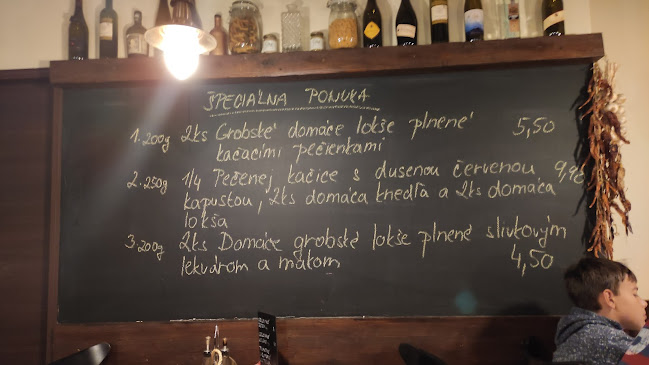 ŠPECIÁLNA PONUKA
1. 200g 2ks Grobské domáce lokše plnené 5,50
kačacími pečienkami
2. 250g 1/4 Pečenej kačice s dusenou červenou 9,90
kapustou, 2ks domáca knedľa a 2ks domáca
lokša
3. 200g 2ks Domáce grobské lokše plnené slivkovým
lekvárom a makom 4,50